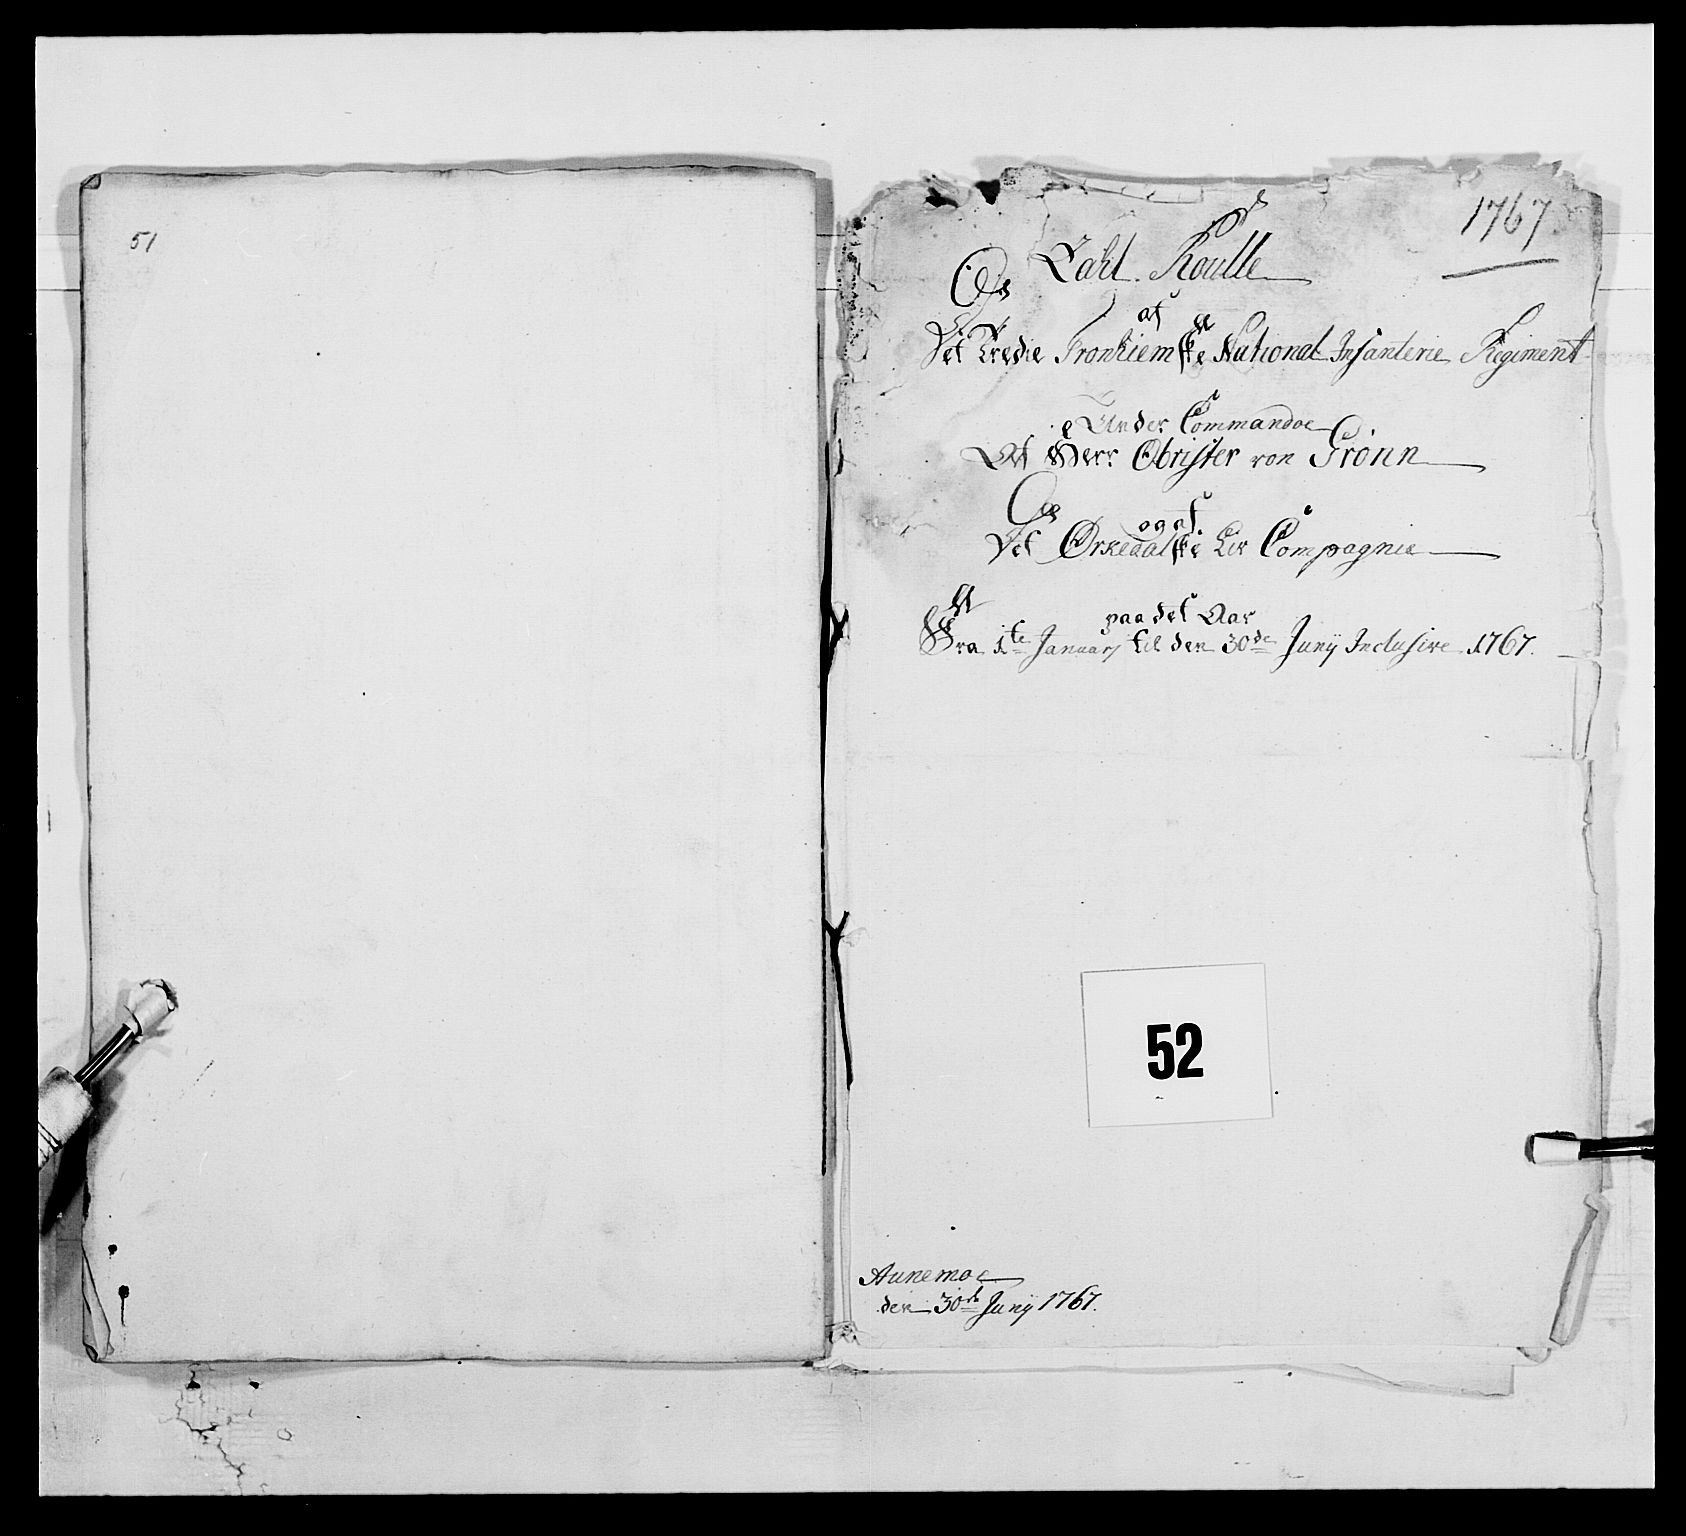 51
1767
Zahl Roulle
af
Det Tredie Tronhiemske National Infanterie Regiment
Under Commandoe
Af Herr Obrister von Grönn
og af
Det Örkedalske Liv Compagnie
paa det Aar
Fra 1te January til den 30de Junij Inclusive 1767.
52
Aunemoe
den 30de Junij 1767.